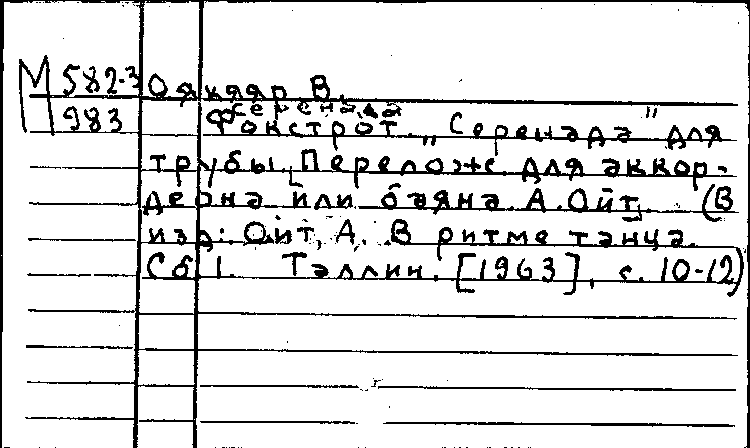 М 582-3 Оякяяр В.
983 Серенада
Фокстрот „Серенада" для
трубы. [Перелож. для аккор-
деона или баяна А. Ойт]. (В
изд: Ойт, А. В ритме танца.
Сб. 1. Таллин. [1963], с. 10-12)